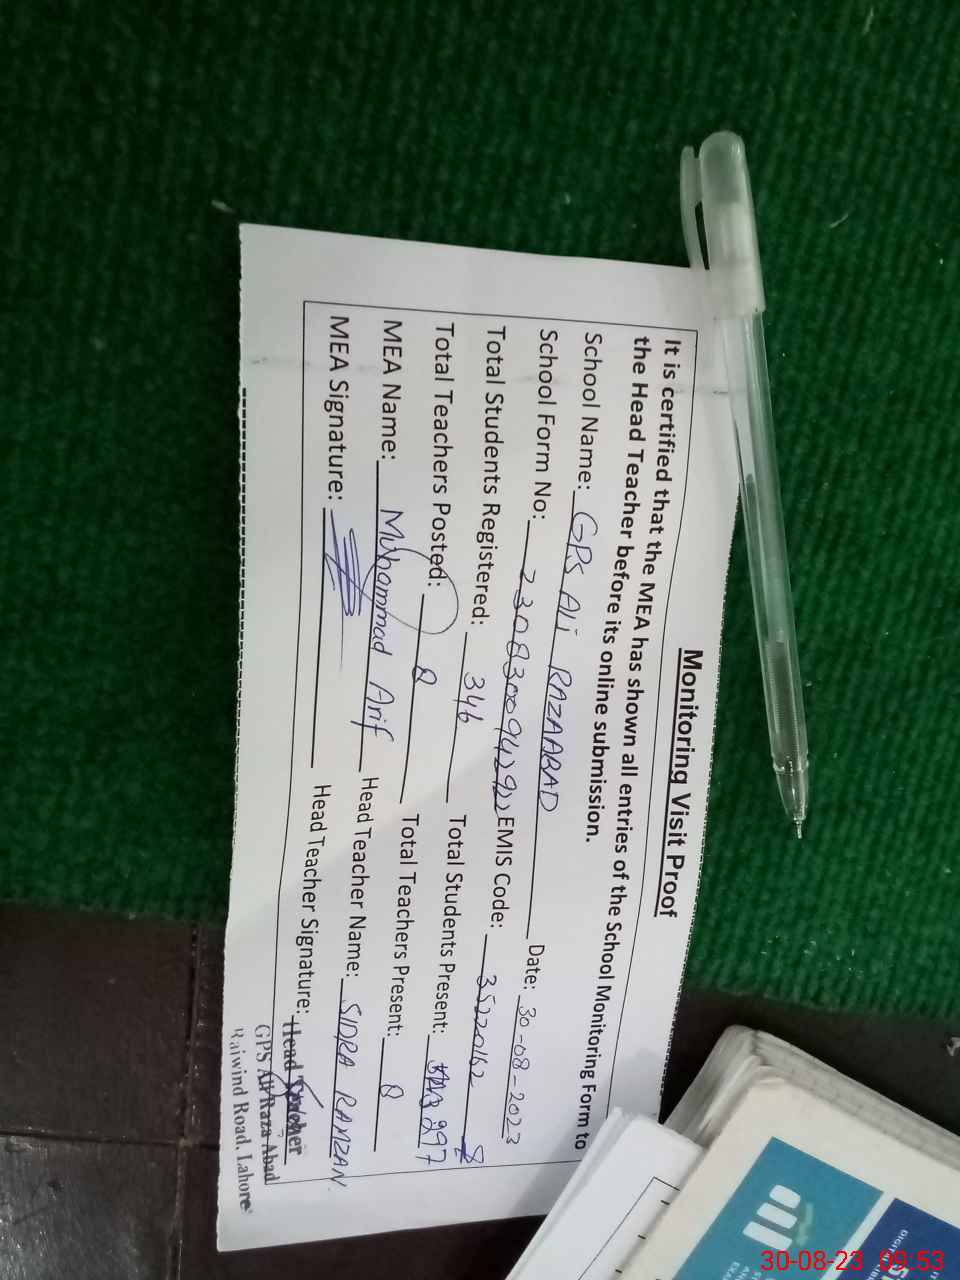 Monitoring Visit Proof
It is certified that the MEA has shown all entries of the School Monitoring Form to
the Head Teacher before its online submission.
School Name: GPS Ali RAZAABAD Date: 30-08-2023
School Form No: EMIS Code: 35220162
Total Students Registered: 346 Total Students Present: 297
Total Teachers Posted: 8 Total Teachers Present: 8
MEA Name: Muhammad Arif Head Teacher Name: SIDRA RAMZAN.
MEA Signature: Head Teacher Signature:
Head Teacher
GPS Ali Raza Abad
Raiwind Road, Lahore
30-08-23 09:53